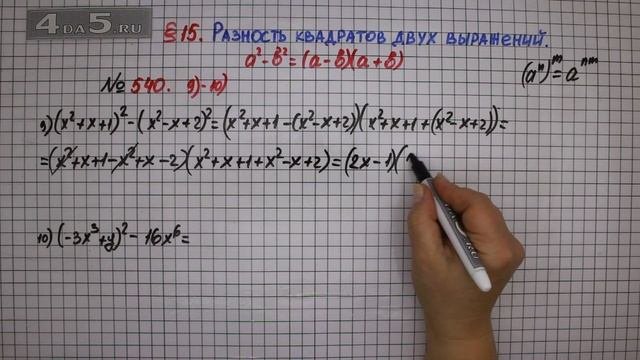 4DA5.RU
§15. Разность квадратов двух выражений.
a²-b²=(a-b)(a+b)
№540. 9)-10)
(aⁿ)ᵐ=aⁿᵐ
9) (x²+x+1)²-(x²-x+2)²=(x²+x+1-(x²-x+2))(x²+x+1+(x²-x+2))=
=(x²+x+1-x²+x-2)(x²+x+1+x²-x+2)=(2x-1)(
10) (-3x³+y)²-16x⁶=